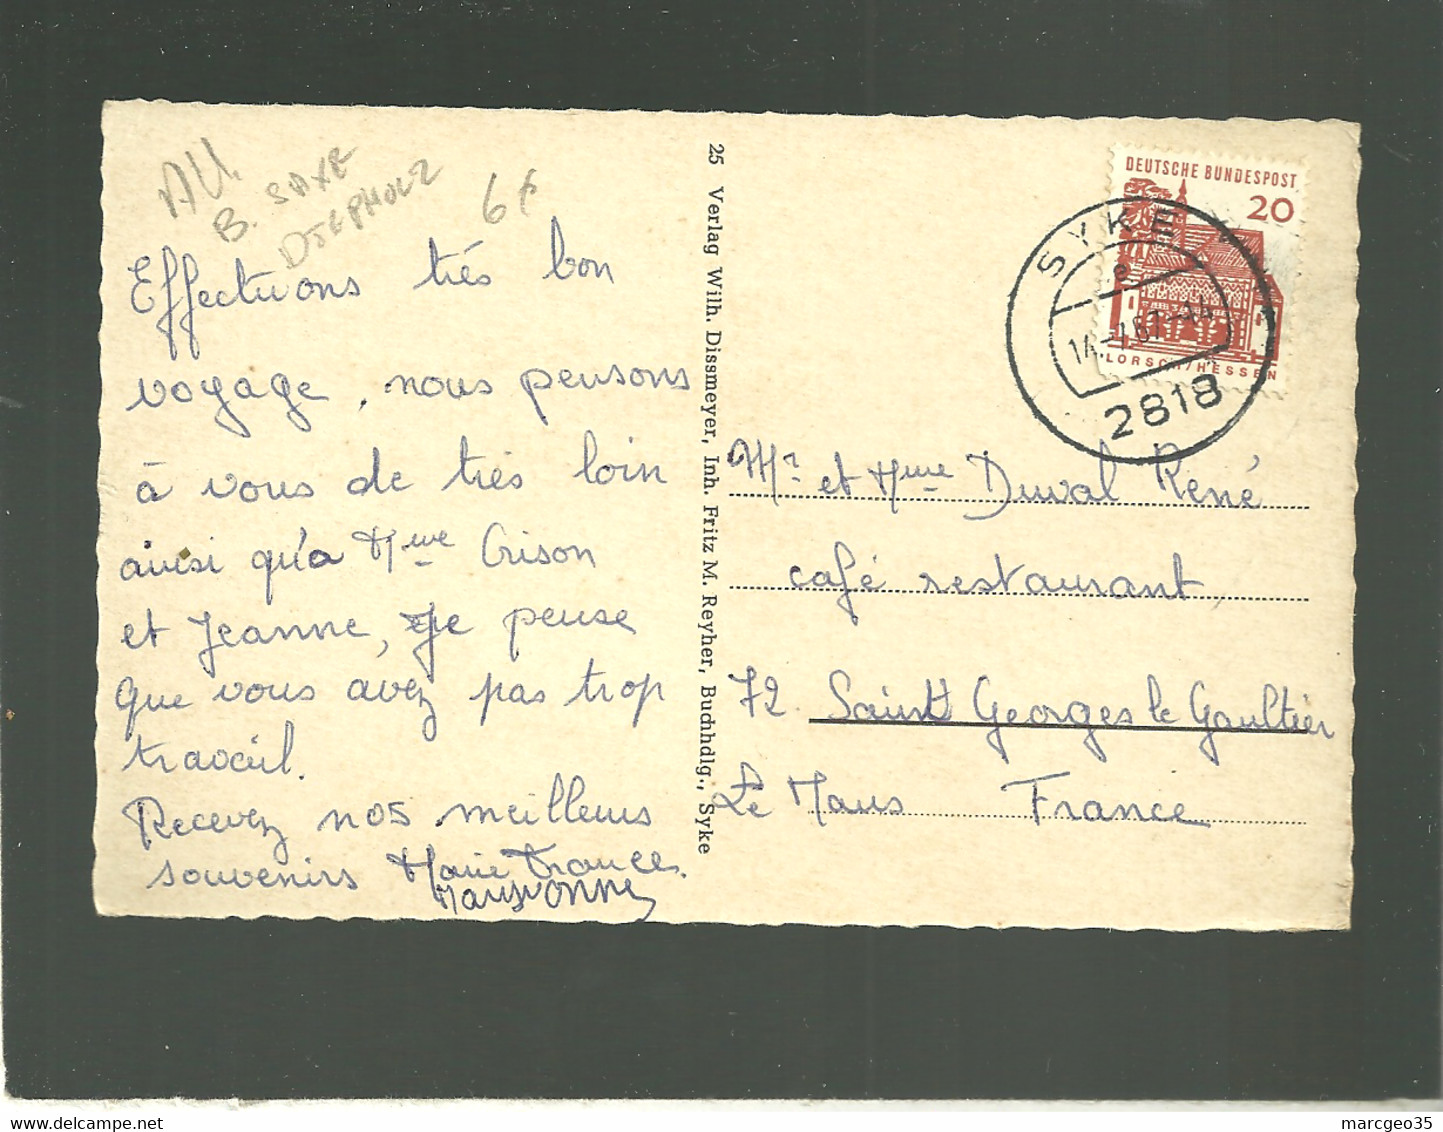 AU.
B. SAXE
DIEPHOLZ
6€
Effectuons trés bon
voyage, nous pensons
à vous de trés loin
ainsi qu'a Mme Crison
et Jeanne, Je pense
que vous avez pas trop
travail.
Recevez nos meilleurs
souvenirs Marie France.
25 Verlag Wilh. Dissmeyer, Inh. Fritz M. Reyher, Buchhdlg., Syke
DEUTSCHE BUNDESPOST
20
LORSCH/HESSEN
SYKE
e
14.-7.67-14
2818
Mr et Mme Duval René
café restaurant
72 Saint Georges le Gaultier
Le Mans France
marcgeo35